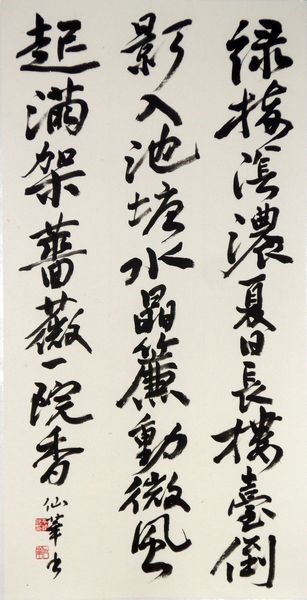 緑樹陰濃夏日長樓臺倒
影入池塘水晶簾動微風
起滿架薔薇一院香
仙華书